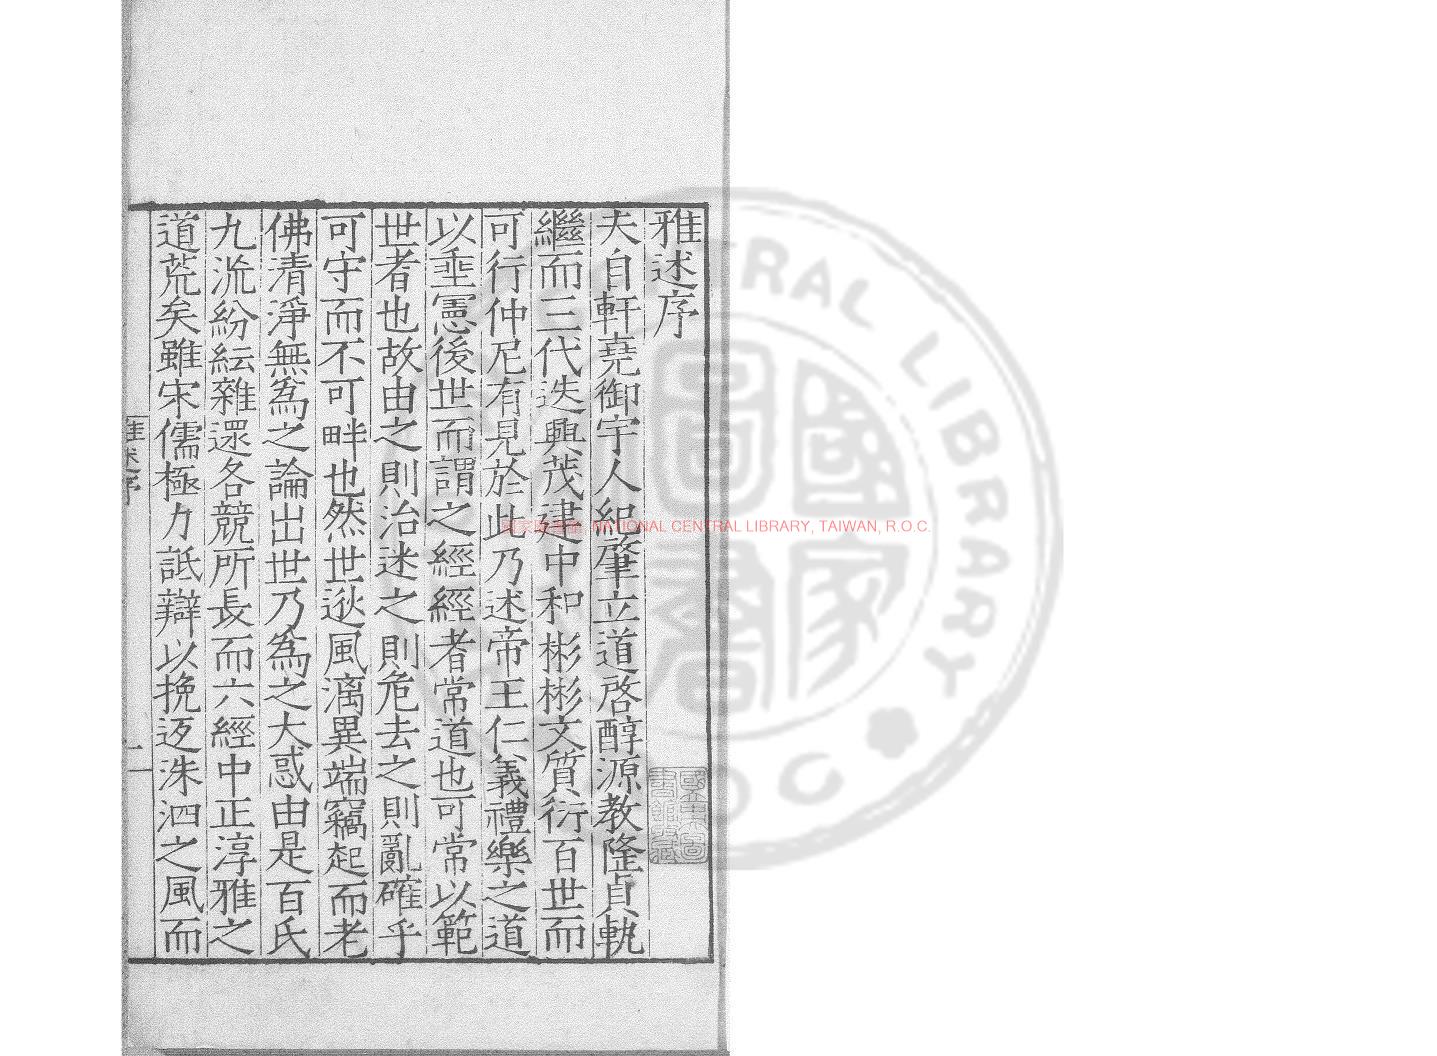 雅述序
夫自軒堯御宇人紀肇立道啓醇源教隆貞軌
繼而三代迭興茂建中和彬彬文質衍百世而
可行仲尼有見於此乃述帝王仁義禮樂之道
以垂憲後世而謂之經經者常道也可常以範
世者也故由之則治迷之則危去之則亂確乎
可守而不可畔也然世逖風漓異端竊起而老
佛清淨無爲之論出世乃爲之大惑由是百氏
九流紛紜雜還各競所長而六經中正淳雅之
道荒矣雖宋儒極力詆辯以挽返洙泗之風而
雅述序
一
國家圖書館 NATIONAL CENTRAL LIBRARY, TAIWAN, R.O.C.
CENTRAL LIBRARY
ROC
國家圖書